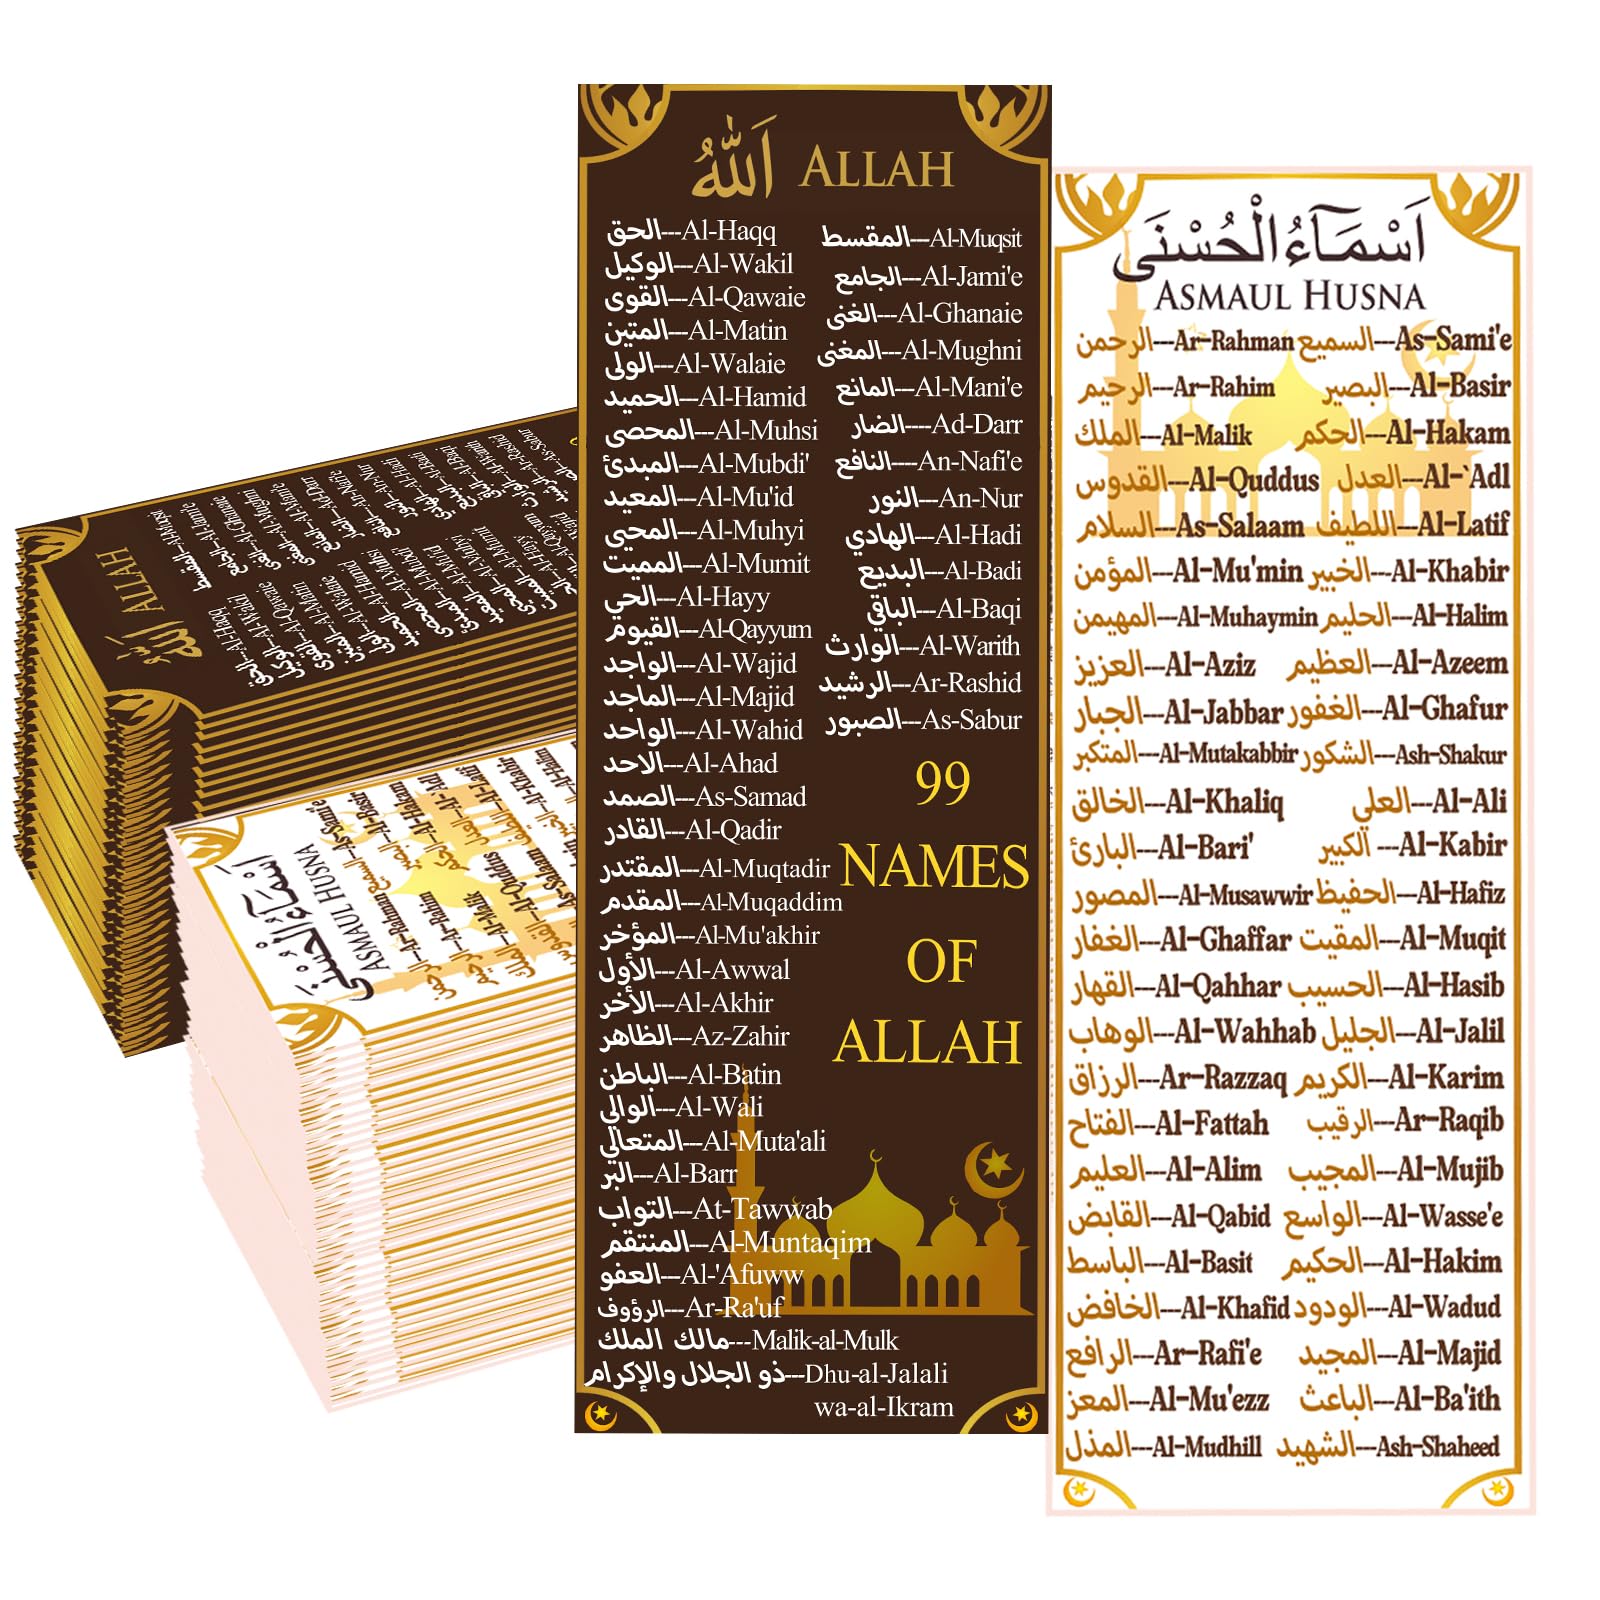 اَللّٰهُ ALLAH
الحق---Al-Haqq
الوكيل---Al-Wakil
القوى---Al-Qawaie
المتين---Al-Matin
الولى---Al-Walaie
الحميد---Al-Hamid
المحصى---Al-Muhsi
المبدئ---Al-Mubdi'
المعيد---Al-Mu'id
المحيى---Al-Muhyi
المميت---Al-Mumit
الحي---Al-Hayy
القيوم---Al-Qayyum
الواجد---Al-Wajid
الماجد---Al-Majid
الواحد---Al-Wahid
الاحد---Al-Ahad
الصمد---As-Samad
القادر---Al-Qadir
المقتدر---Al-Muqtadir
المقدم---Al-Muqaddim
المؤخر---Al-Mu'akhir
الأول---Al-Awwal
الأخر---Al-Akhir
الظاهر---Az-Zahir
الباطن---Al-Batin
الوالي---Al-Wali
المتعالي---Al-Muta'ali
البر---Al-Barr
التواب---At-Tawwab
المنتقم---Al-Muntaqim
العفو---Al-'Afuww
الرؤوف---Ar-Ra'uf
مالك الملك---Malik-al-Mulk
ذو الجلال والإكرام---Dhu-al-Jalali
wa-al-Ikram
المقسط---Al-Muqsit
الجامع---Al-Jami'e
الغنى---Al-Ghanaie
المغنى---Al-Mughni
المانع---Al-Mani'e
الضار----Ad-Darr
النافع---An-Nafi'e
النور---An-Nur
الهادي---Al-Hadi
البديع---Al-Badi
الباقي---Al-Baqi
الوارث---Al-Warith
الرشيد---Ar-Rashid
الصبور---As-Sabur
99
NAMES
OF
ALLAH
اَسْمَآءُ الْحُسْنَى
ASMAUL HUSNA
الرحمن---Ar-Rahman السميع---As-Sami'e
الرحيم---Ar-Rahim البصير---Al-Basir
الملك---Al-Malik الحكم---Al-Hakam
القدوس---Al-Quddus العدل---Al-`Adl
السلام---As-Salaam اللطيف---Al-Latif
المؤمن---Al-Mu'min الخبير---Al-Khabir
المهيمن---Al-Muhaymin الحليم---Al-Halim
العزيز---Al-Aziz العظيم---Al-Azeem
الجبار---Al-Jabbar الغفور---Al-Ghafur
المتكبر---Al-Mutakabbir الشكور---Ash-Shakur
الخالق---Al-Khaliq العلي---Al-Ali
البارئ---Al-Bari' الكبير---Al-Kabir
المصور---Al-Musawwir الحفيظ---Al-Hafiz
الغفار---Al-Ghaffar المقيت---Al-Muqit
القهار---Al-Qahhar الحسيب---Al-Hasib
الوهاب---Al-Wahhab الجليل---Al-Jalil
الرزاق---Ar-Razzaq الكريم---Al-Karim
الفتاح---Al-Fattah الرقيب---Ar-Raqib
العليم---Al-Alim المجيب---Al-Mujib
القابض---Al-Qabid الواسع---Al-Wasse'e
الباسط---Al-Basit الحكيم---Al-Hakim
الخافض---Al-Khafid الودود---Al-Wadud
الرافع---Ar-Rafi'e المجيد---Al-Majid
المعز---Al-Mu'ezz الباعث---Al-Ba'ith
المذل---Al-Mudhill الشهيد---Ash-Shaheed